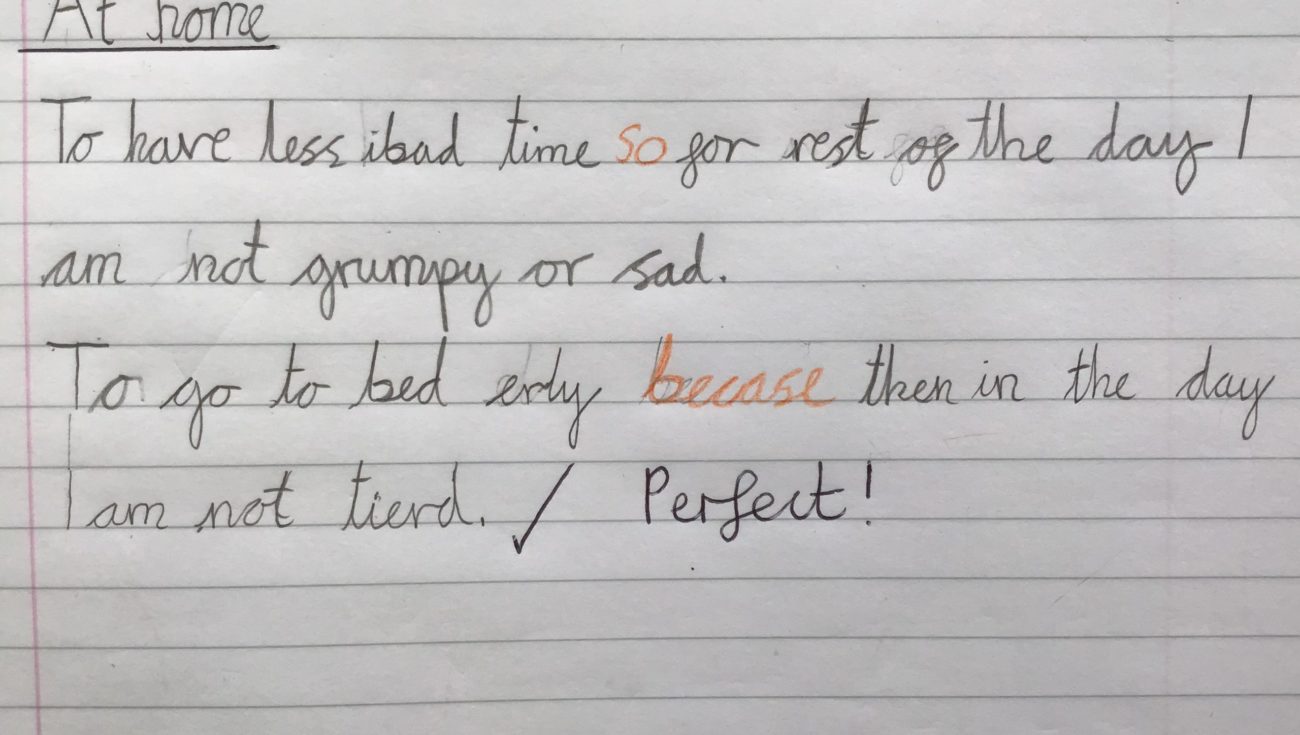 At home
To have less ibad time so for rest of the day I
am not grumpy or sad.
To go to bed erly becase then in the day
I am not tierd. ✓ Perfect!